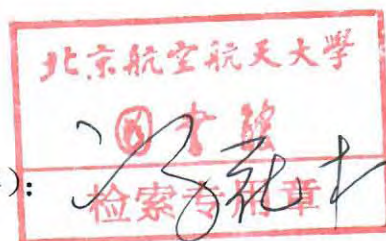 北京航空航天大學
图書館
):
检索专用章